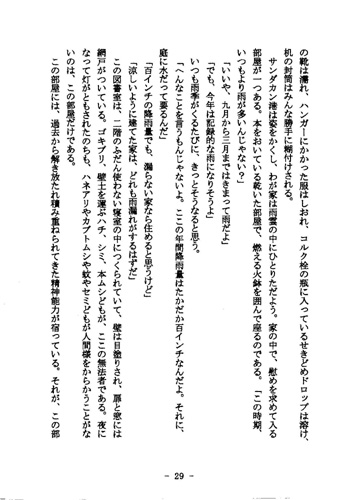 の靴は濡れ、ハンガーにかかった服はしおれ、コルク栓の瓶に入っているせきどめドロップは溶け、
机の封筒はみんな勝手に糊付けされる。
サンダカン港は姿をかくし、わが家は雨雲の中にひとりただよう。家の中で、慰めを求めて入る
部屋が一つある。本をおいている乾いた部屋で、燃える火鉢を囲んで座るのである。「この時期、
いつもより雨が多いんじゃない？」
「いいや、九月から三月まではきまって雨だよ」
「でも、今年は記録的な雨になりそうよ」
いつも雨季がくるたびに、きっとそうなると思う。
「へんなことを言うもんじゃないよ。ここの年間降雨量はたかだか百インチなんだよ。それに、
庭に水だって要るんだ」
「百インチの降雨量でも、漏らない家なら住めると思うけど」
「涼しいように建てた家は、どれも雨漏れがするはずだ」
この図書室は、二階のふだん使わない寝室の中につくられていて、壁は目塗りされ、扉と窓には
網戸がついている。ゴキブリ、壁土を運ぶハチ、シミ、本ムシどもが、ここの無法者である。夜に
なって灯がともされたのちも、ハネアリやカブトムシや蚊やセミどもが人間様をからかうことがな
いのは、この部屋だけである。
この部屋には、過去から解き放たれ積み重ねられてきた精神能力が宿っている。それが、この部
- 29 -